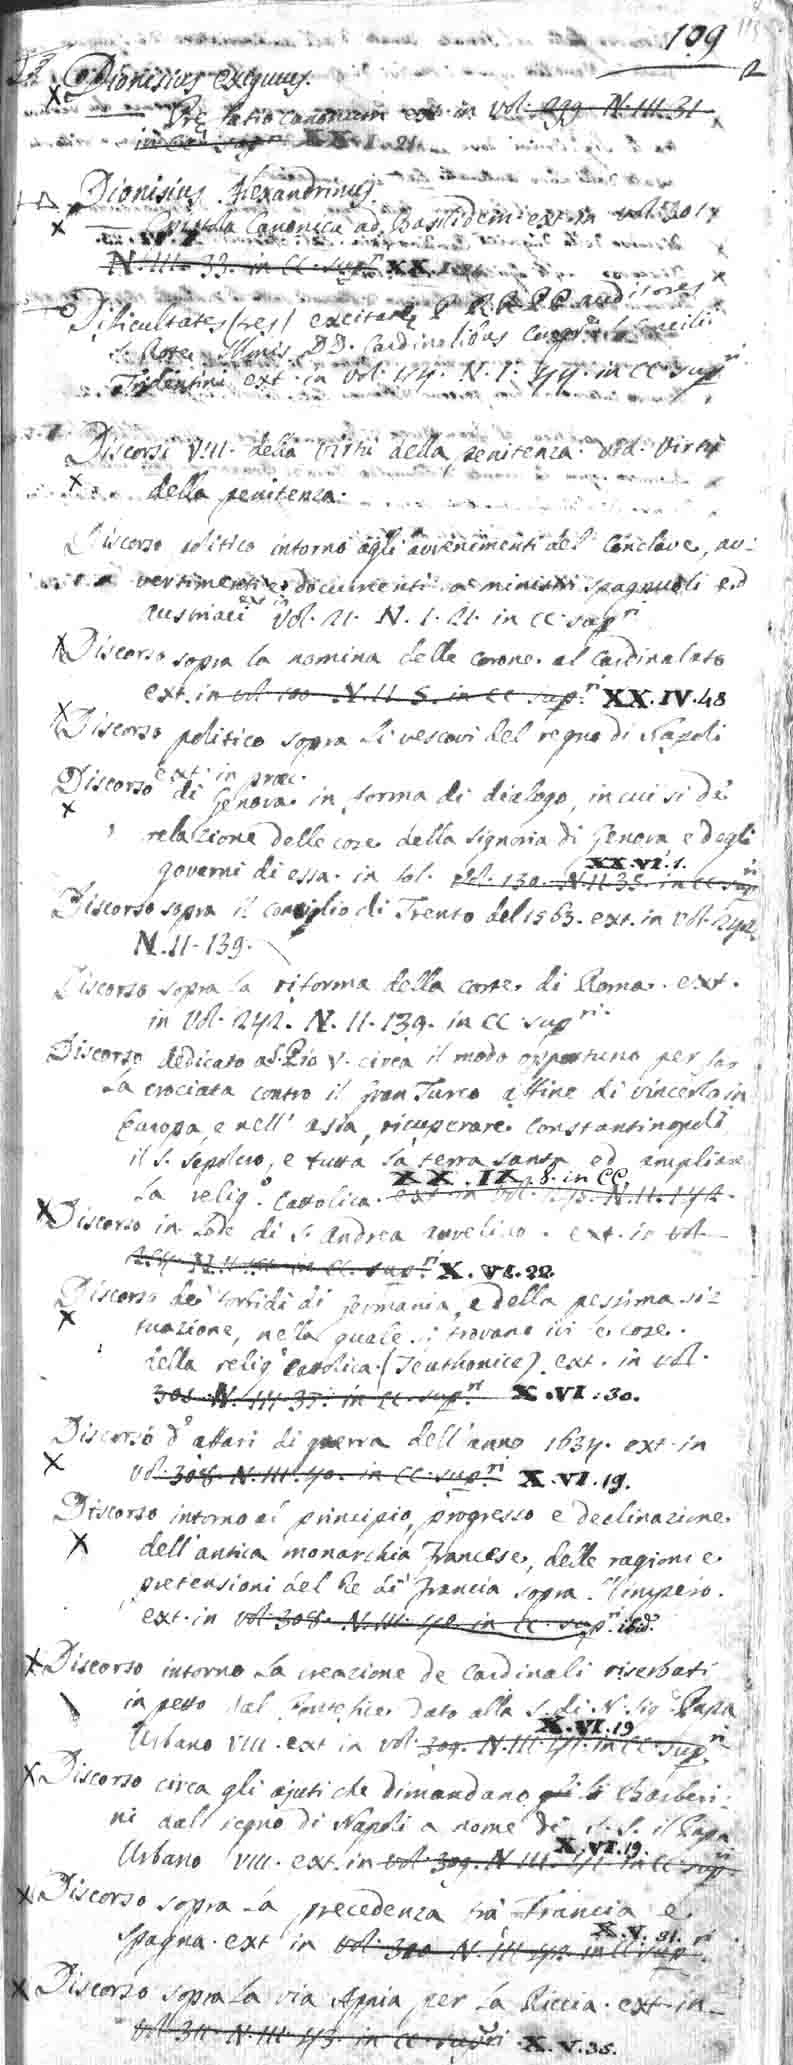 109
Dionisius exiguus.
Prefatio canonum ext. in vol. 239 N. III. 31
in CC. supri XX. I. 21.
Dionisius Alexandrinus.
Epistola Canonica ad Basilidem ext. in vol. 301
N. III. 33. in CC. supri XX.
Dificultates (tres) excitate P. RR. PP. auditores
S. Rote Illmis DD. Cardinalibus Congr. S. Concilii
Tridentini ext. in vol. 174. N. I. 44. in CC. supri
Discorsi VIII. della virtù della penitenza. vid. Virtù
della penitenza.
Discorso politico intorno agli avvenimenti del Conclave, av-
vertimenti e documenti a ministri spagnuoli ed
austriaci ext. in vol. 21. N. I. 21. in CC. supri
Discorso sopra la nomina delle corone al Cardinalato
ext. in vol. 100. N. II. 5. in CC. supri XX. IV. 48
Discorso politico sopra li vescovi del regno di Napoli
ext. in prec.
Discorso di Genova in forma di dialogo, in cui si dè
relazione delle cose della signoria di Genova e degli
governi di essa. in fol. vol. 130. N. II 35. in CC supri XX. VI. 1.
Discorso sopra il consiglio di Trento del 1563. ext. in vol. 242
N. II. 139.
Discorso sopra la riforma della corte di Roma. ext.
in vol. 242. N. II. 139. in CC supri.
Discorso dedicato a S. Pio V. circa il modo opportuno per far
la crociata contro il gran Turco affine di vincerlo in
Europa e nell' asia, ricuperare Constantinopoli
il S. Sepolcro, e tutta la terra santa ed ampliare
la religo. Cattolica. ext in vol. N. II. 142. XX. IX. 8. in CC.
Discorso in lode di S. Andrea Avvelino. ext. in vol
in CC. supri X. VI. 22.
Discorso de torbidi di Germania, e della pessima si-
tuazione, nella quale si trovano ivi le cose
della religo. Cattolica. (Teuthonice) ext. in vol.
301. N. III. 35. in CC. supri X. VI. 30.
Discorso d'affari di guerra dell'anno 1634. ext. in
vol. 308. N. III. 40. in CC. supri X. VI. 19.
Discorso intorno al principio, progresso e declinazione
dell'antica monarchia francese, delle ragioni e
pretensioni del Re di Francia sopra l'impero.
ext. in vol 308. N. III. 40. in CC. supri ibid.
Discorso intorno la creazione de Cardinali riserbati
in petto dal Pontefice dato alla S. di N. Sigr. Papa
Urbano VIII. ext in vol. 309. N. III. 41. in CC. supri X. VI. 19
Discorso circa gli ajuti che dimandano gli li Barberi-
ni dall regno di Napoli a nome di S. S. il Papa
Urbano VIII. ext. in vol. 309. N III. 41 in CC supri X. VI. 19.
Discorso sopra la precedenza trà Francia e
Spagna. ext in vol. 310 N. III 42 in CC supri X. V. 31.
Discorso sopra la via Appia per la Riccia. ext in
vol 311. N. III. 43. in CC supri X. V. 35.